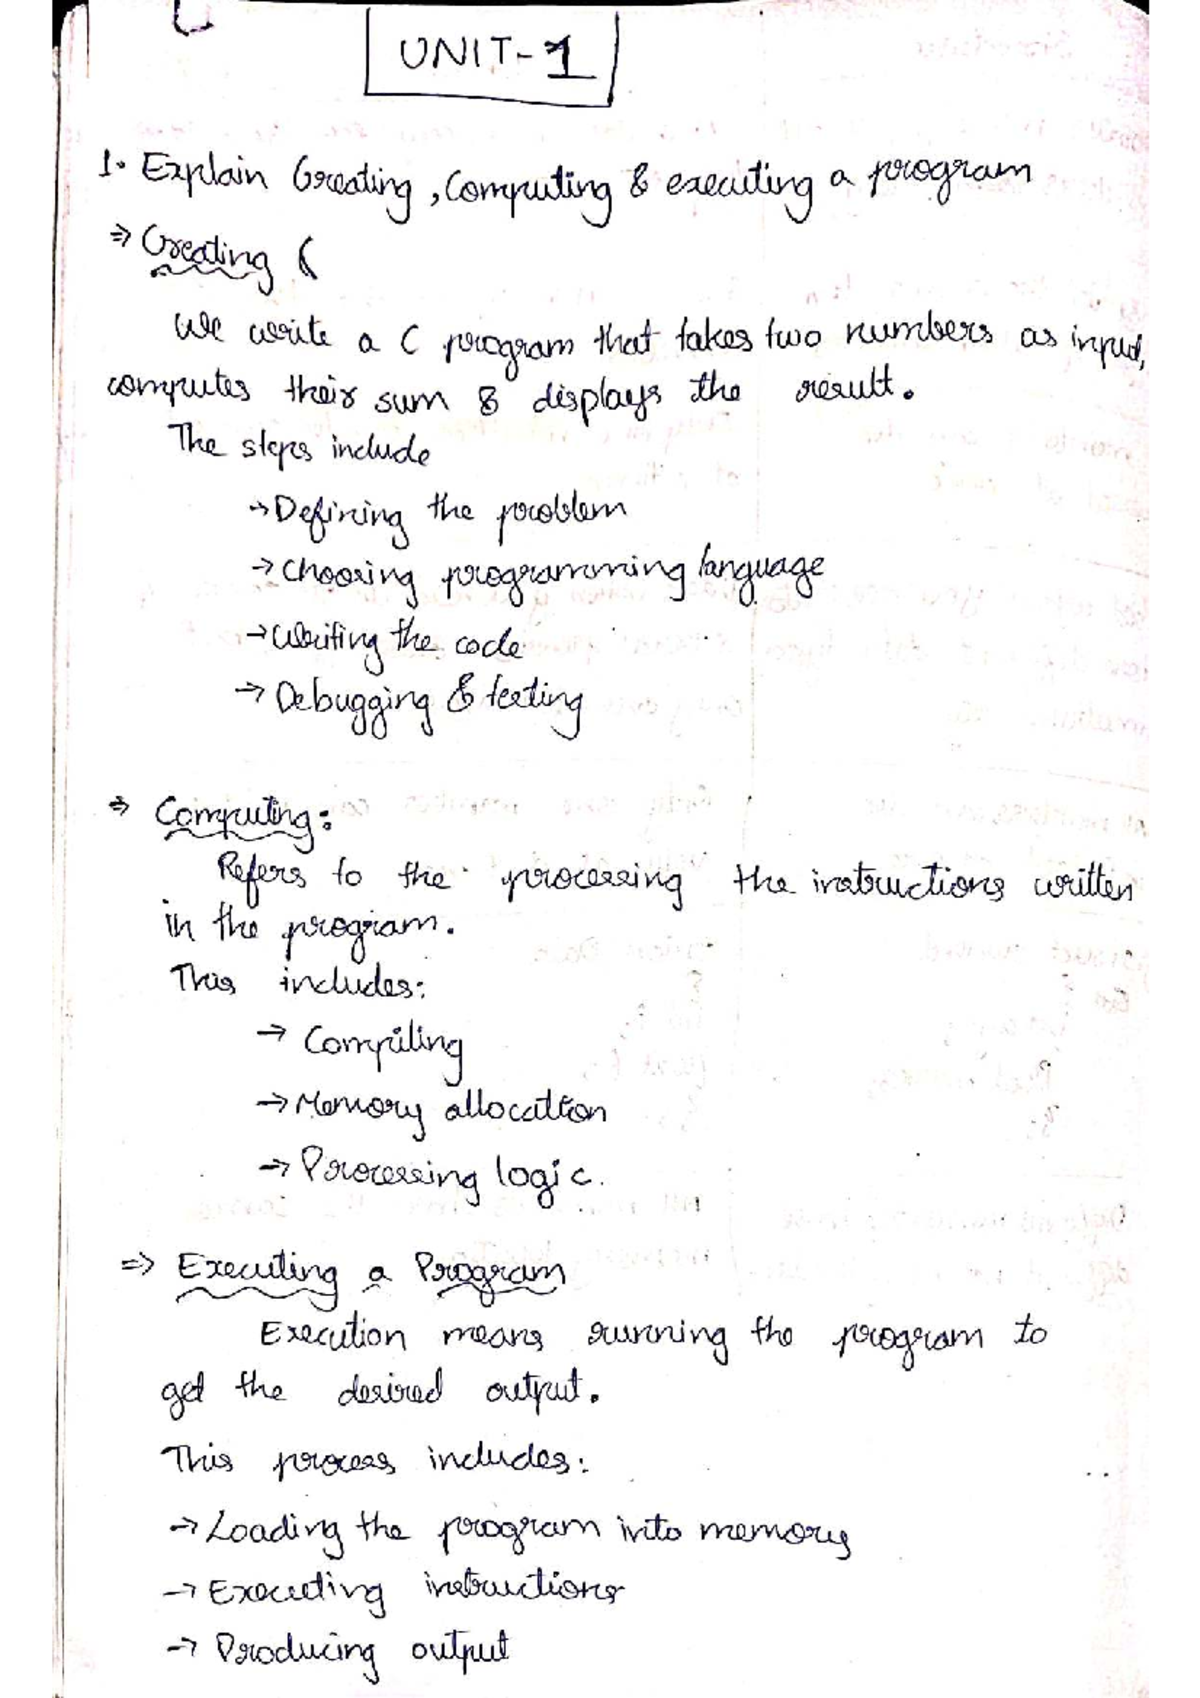 UNIT-1
1. Explain Creating, Computing & executing a program
⇒ Creating (
We write a C program that takes two numbers as input,
computes their sum & displays the result.
The steps include
→ Defining the problem
→ choosing programming language
→ writing the code
→ Debugging & testing
⇒ Computing:
Refers to the processing the instructions written
in the program.
This includes:
→ Compiling
→ Memory allocation
→ Processing logic.
⇒ Executing a Program
Execution means running the program to
get the desired output.
This process includes:
→ Loading the program into memory
→ Executing instructions
→ Producing output